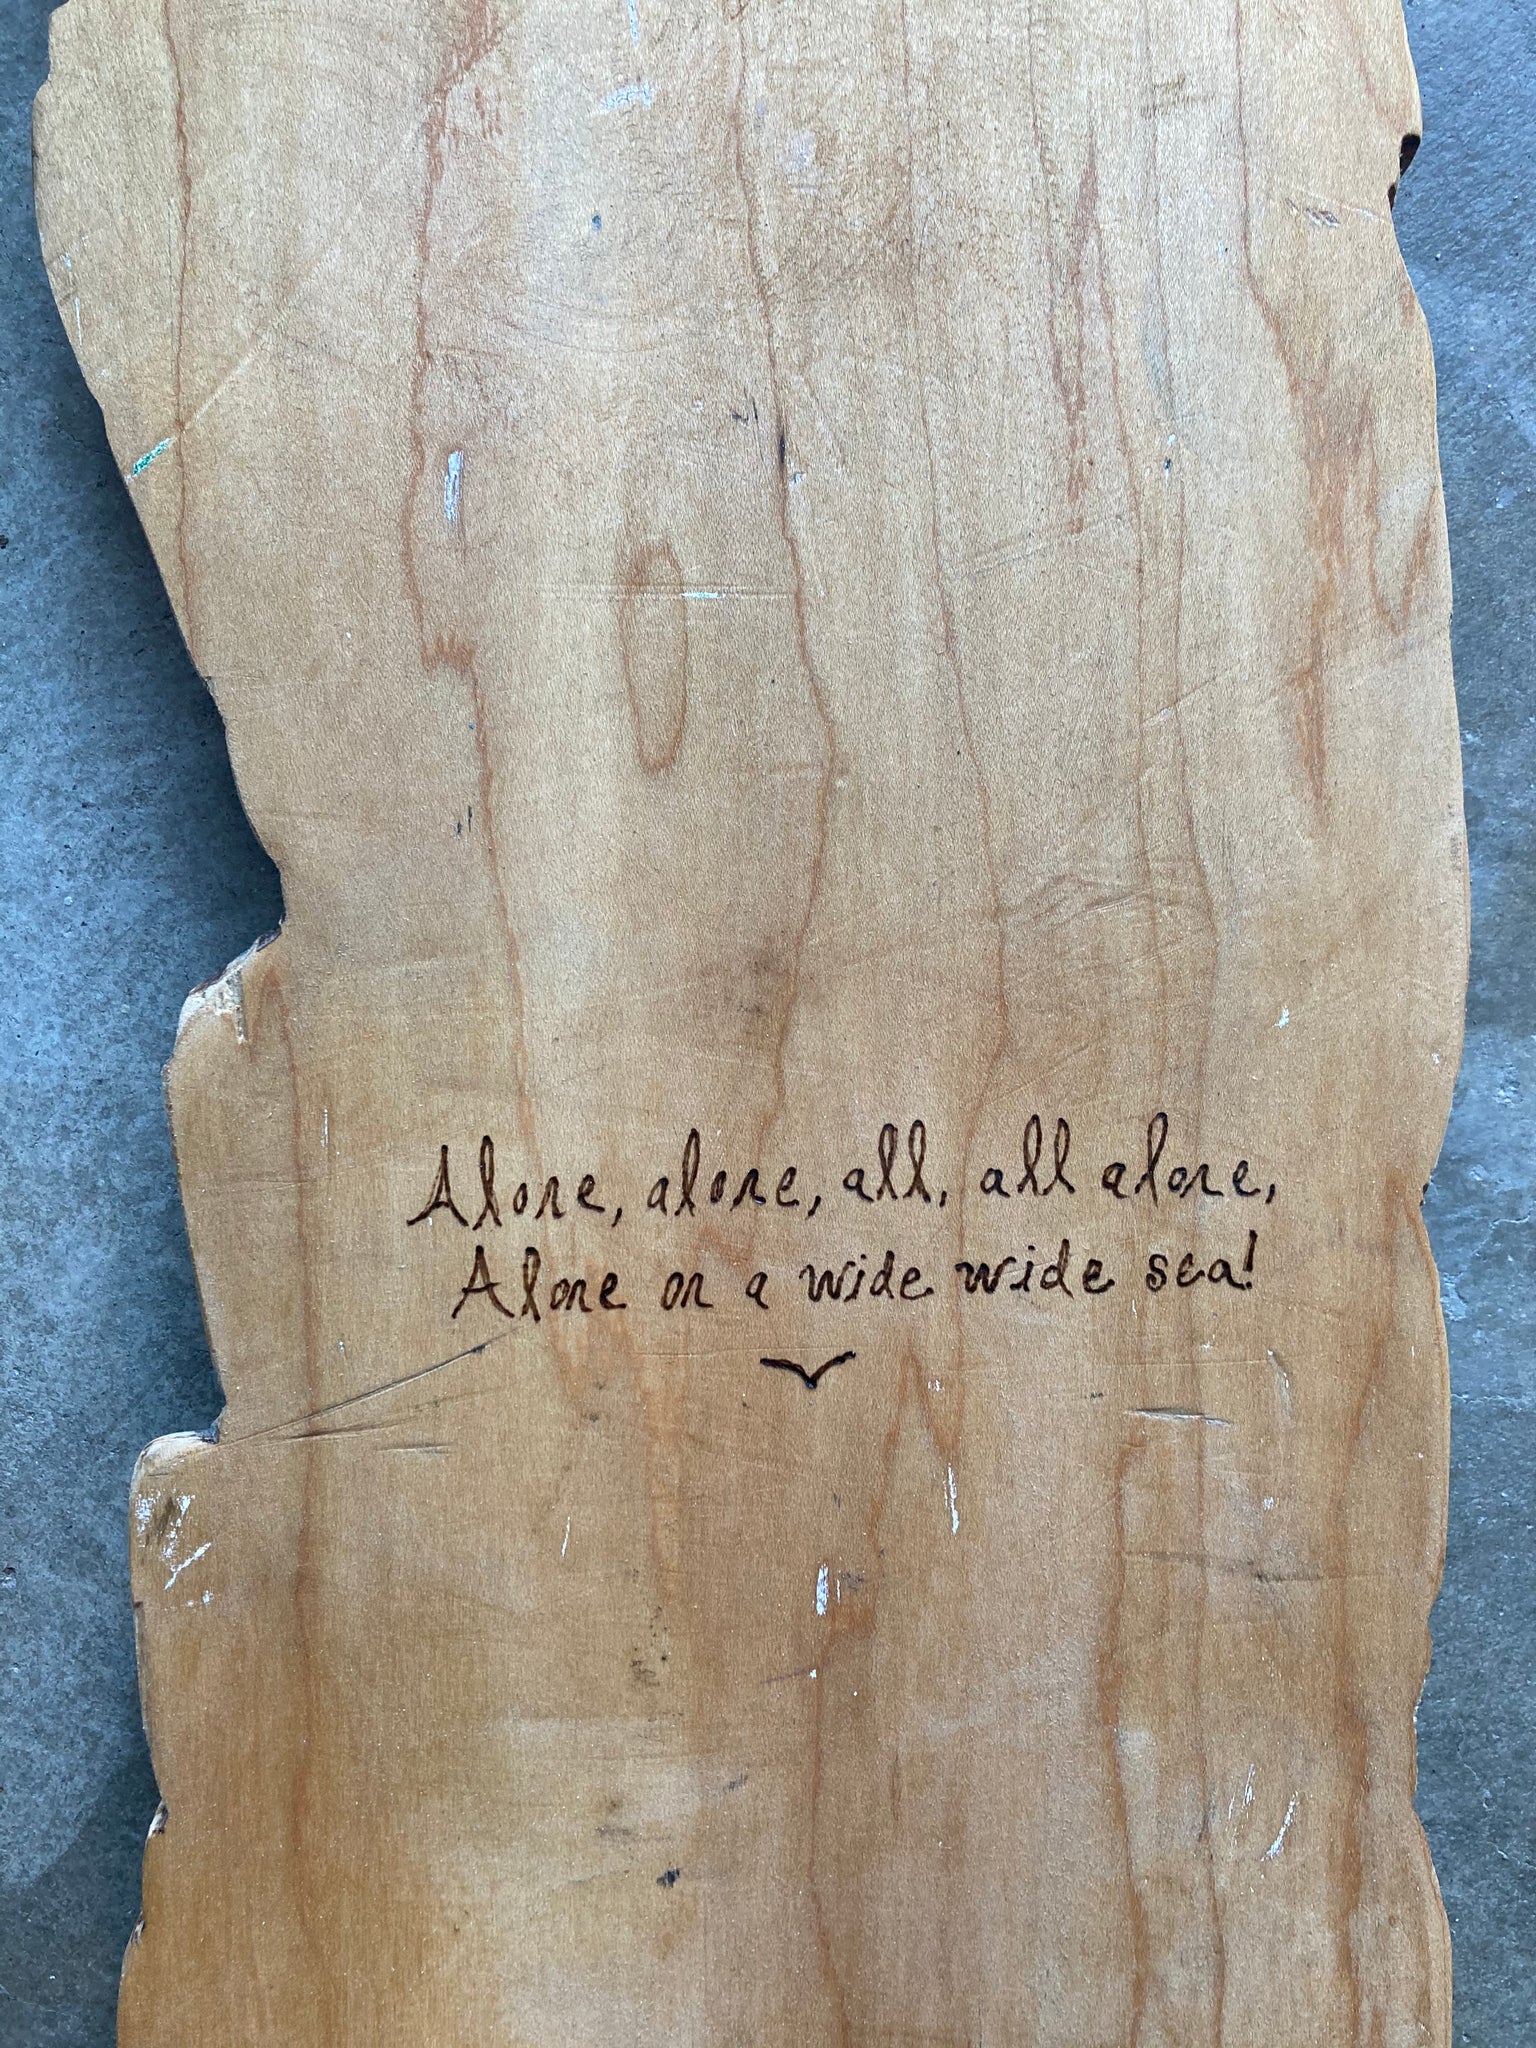 Alone, alone, all, all alone,
Alone on a wide wide sea!